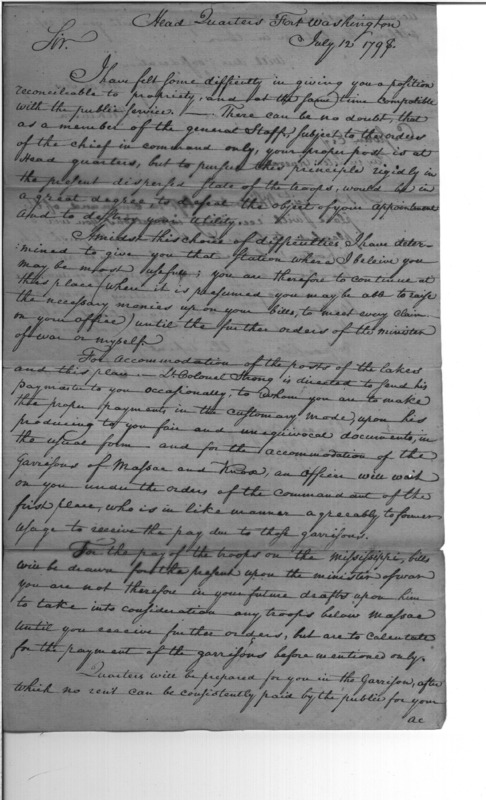 Head Quarters Fort Washington
July 12 1798.
Sir.
I have felt some difficulty in giving you a position
reconcilable to propriety, and at the same time compatible
with the public service. — There can be no doubt, that
as a member of the general Staff, subject to the orders
of the chief in command only, your proper post is at
Head quarters, but to pursue this principle rigidly in
the present dispersed state of the troops, would be in
a great degree to defeat the object of your appointment
and to destroy your utility.
Amidst this choice of difficulties I have deter-
mined to give you that station where I beleive you
may be most usefull; you are therefore to continue at
this place (where it is presumed you may be able to raise
the necessary monies upon your bills, to meet every claim
on your office) until the further orders of the minister
of war or myself.
For accommodation of the posts of the lakes
and this place — Lt Colonel Strong is directed to send his
paymaster to you occasionally, to whom you are to make
the proper payments, in the customary mode, upon his
producing to you fair and unequivocal documents, in
the usual form — and for the accommodation of the
Garrisons of Massac and Knox, an officer will wait
on you under the orders of the commandant of the
first place, who is in like manner agreeably to former
usage to receive the pay due to those garrisons.
For the pay of the troops on the Mississippi, bills
will be drawn for the present upon the minister of war
you are not therefore in your future drafts upon him
to take into consideration any troops below Massac
until you receive further orders, but are to calculate
for the payment of the garrisons before mentioned only.
Quarters will be prepared for you in the Garrison, after
which no rent can be consistently paid by the public for your
ac